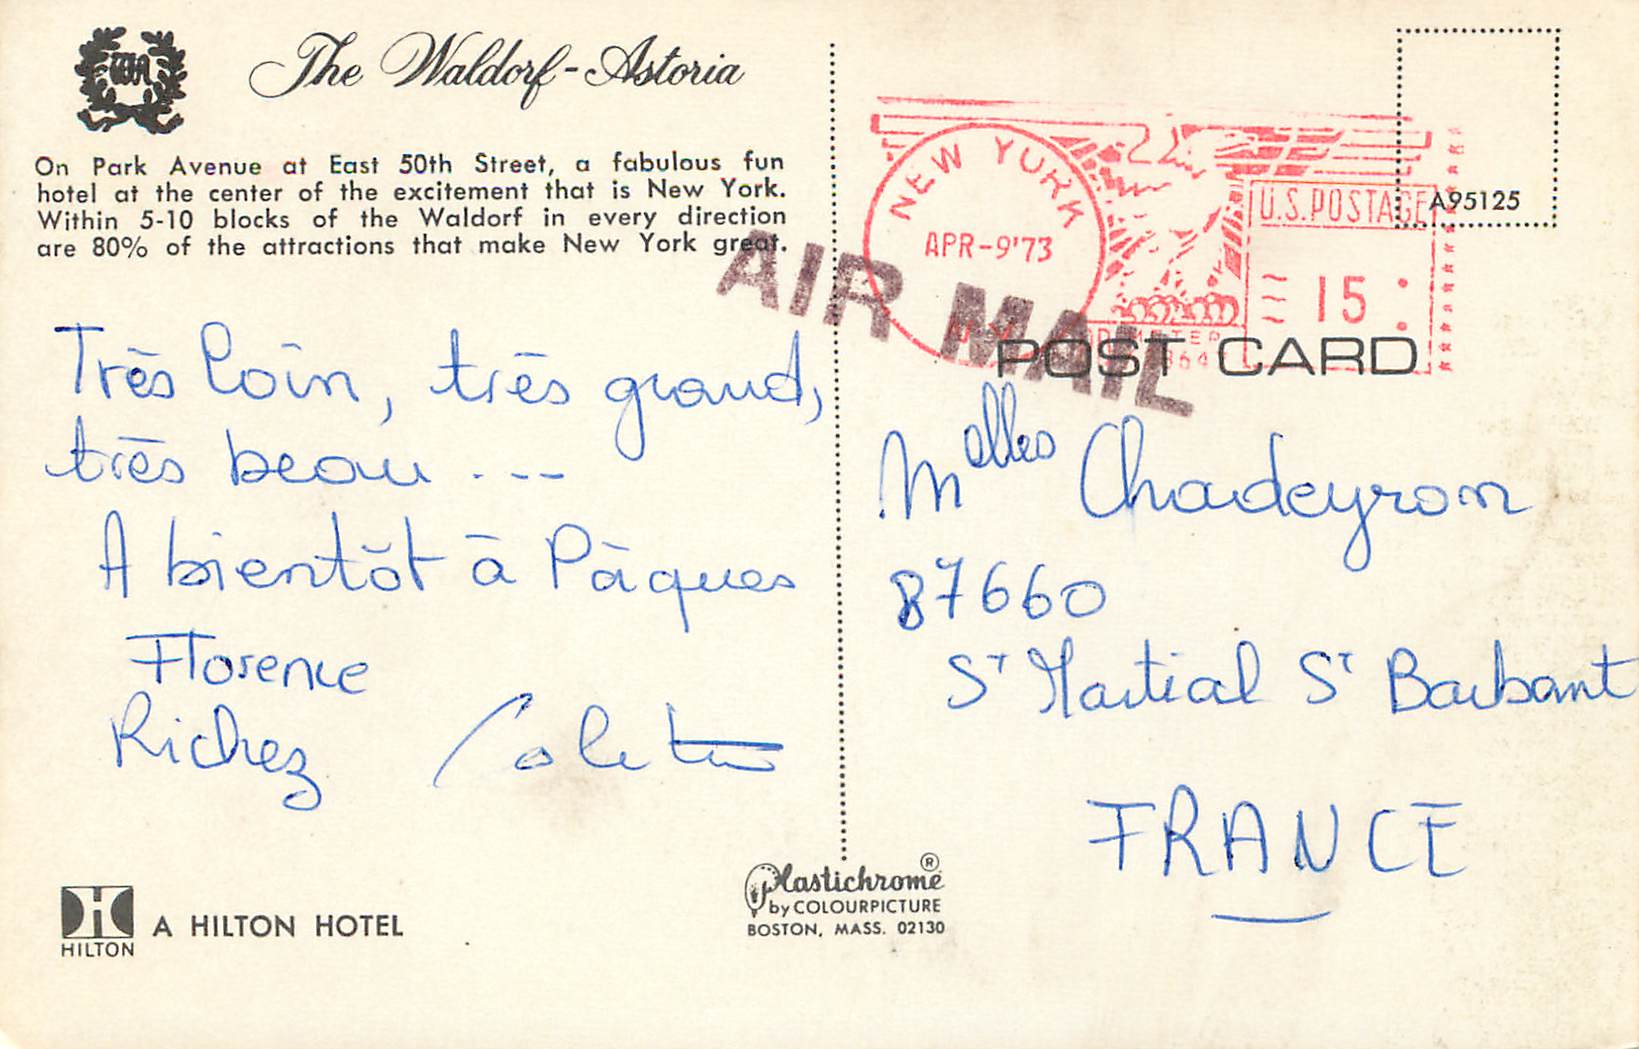 WA
The Waldorf-Astoria
On Park Avenue at East 50th Street, a fabulous fun
hotel at the center of the excitement that is New York.
Within 5-10 blocks of the Waldorf in every direction
are 80% of the attractions that make New York great.
Très loin, très grand,
très beau ...
A bientôt à Pâques
Florence
Richez
HILTON
A HILTON HOTEL
Plastichrome®
by COLOURPICTURE
BOSTON, MASS. 02130
NEW YORK
APR-9'73
U.S. POSTAGE
15
A95125
AIR MAIL
POST CARD
Melles Chadeyron
87660
St Martial St Barbant
FRANCE